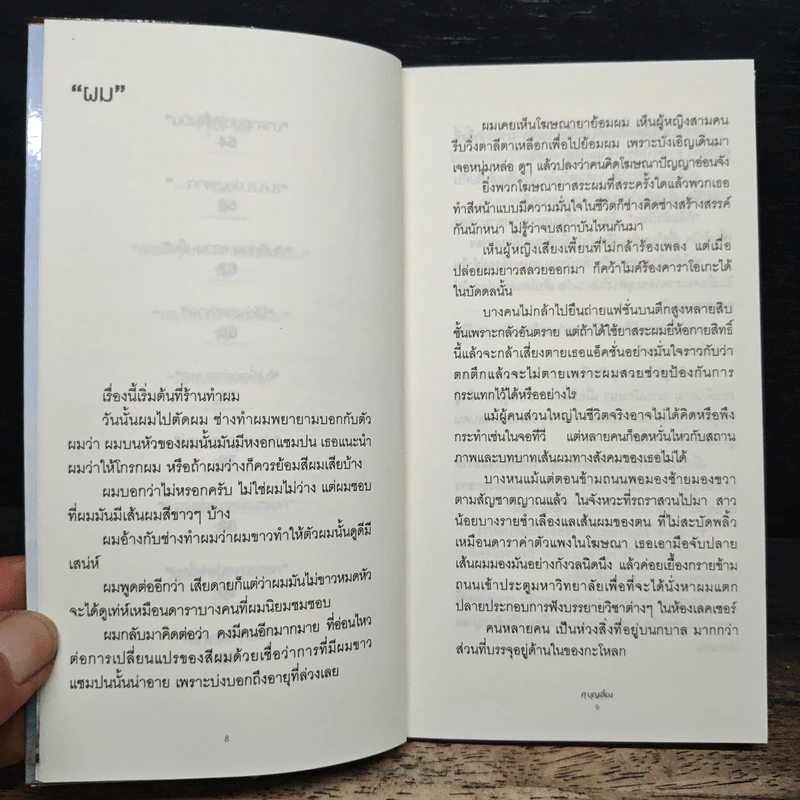 “ผม”
เรื่องนี้เริ่มต้นที่ร้านทำผม
วันนั้นผมไปตัดผม ช่างทำผมพยายามบอกกับตัว
ผมว่า ผมบนหัวของผมนั้นมันมีหงอกแซมปน เธอแนะนำ
ผมว่าให้โกรกผม หรือถ้าผมว่างก็ควรย้อมสีผมเสียบ้าง
ผมบอกว่าไม่หรอกครับ ไม่ใช่ผมไม่ว่าง แต่ผมชอบ
ที่ผมมันมีเส้นผมสีขาวๆ บ้าง
ผมอ้างกับช่างทำผมว่าผมขาวทำให้ตัวผมนั้นดูดีมี
เสน่ห์
ผมพูดต่ออีกว่า เสียดายก็แต่ว่าผมมันไม่ขาวหมดหัว
จะได้ดูเท่ห์เหมือนดาราบางคนที่ผมนิยมชมชอบ
ผมกลับมาคิดต่อว่า คงมีคนอีกมากมาย ที่อ่อนไหว
ต่อการเปลี่ยนแปรของสีผมด้วยเชื่อว่าการที่มีผมขาว
แซมปนนั้นน่าอาย เพราะบ่งบอกถึงอายุที่ล่วงเลย
8
ผมเคยเห็นโฆษณายาย้อมผม เห็นผู้หญิงสามคน
รีบวิ่งตาลีตาเหลือกเพื่อไปย้อมผม เพราะบังเอิญเดินมา
เจอหนุ่มหล่อ ดูๆ แล้วปลงว่าคนคิดโฆษณาปัญญาอ่อนจัง
ยิ่งพวกโฆษณายาสระผมที่สระครั้งใดแล้วพวกเธอ
ทำสีหน้าแบบมีความมั่นใจในชีวิตก็ช่างคิดช่างสร้างสรรค์
กันนักหนา ไม่รู้ว่าจบสถาบันไหนกันมา
เห็นผู้หญิงเสียงเพี้ยนที่ไม่กล้าร้องเพลง แต่เมื่อ
ปล่อยผมยาวสลวยออกมา ก็คว้าไมค์ร้องคาราโอเกะได้
ในบัดดลนั้น
บางคนไม่กล้าไปยืนถ่ายแฟชั่นบนตึกสูงหลายสิบ
ชั้นเพราะกลัวอันตราย แต่ถ้าได้ใช้ยาสระผมยี่ห้อกายสิทธิ์
นี้แล้วจะกล้าเสี่ยงตายเธอแอ็คชั่นอย่างมั่นใจราวกับว่า
ตกตึกแล้วจะไม่ตายเพราะผมสวยช่วยป้องกันการ
กระแทกไว้ได้หรืออย่างไร
แม้ผู้คนส่วนใหญ่ในชีวิตจริงอาจไม่ได้คิดหรือพึง
กระทำเช่นในจอทีวี แต่หลายคนก็อดหวั่นไหวกับสถาน
ภาพและบทบาทเส้นผมทางสังคมของเธอไม่ได้
บางหนแม้แต่ตอนข้ามถนนพอมองซ้ายมองขวา
ตามสัญชาตญาณแล้ว ในจังหวะที่รถราสวนไปมา สาว
น้อยบางรายชำเลืองแลเส้นผมของตน ที่ไม่สะบัดพลิ้ว
เหมือนดาราค่าตัวแพงในโฆษณา เธอเอามือจับปลาย
เส้นผมมองมันอย่างกังวลนิดนึง แล้วค่อยเยื้องกรายข้าม
ถนนเข้าประตูมหาวิทยาลัยเพื่อที่จะได้นั่งหาผมแตก
ปลายประกอบการฟังบรรยายวิชาต่างๆ ในห้องเลคเชอร์
คนหลายคน เป็นห่วงสิ่งที่อยู่บนกบาล มากกว่า
ส่วนที่บรรจุอยู่ด้านในของกะโหลก
ศุ บุญเลี้ยง
9